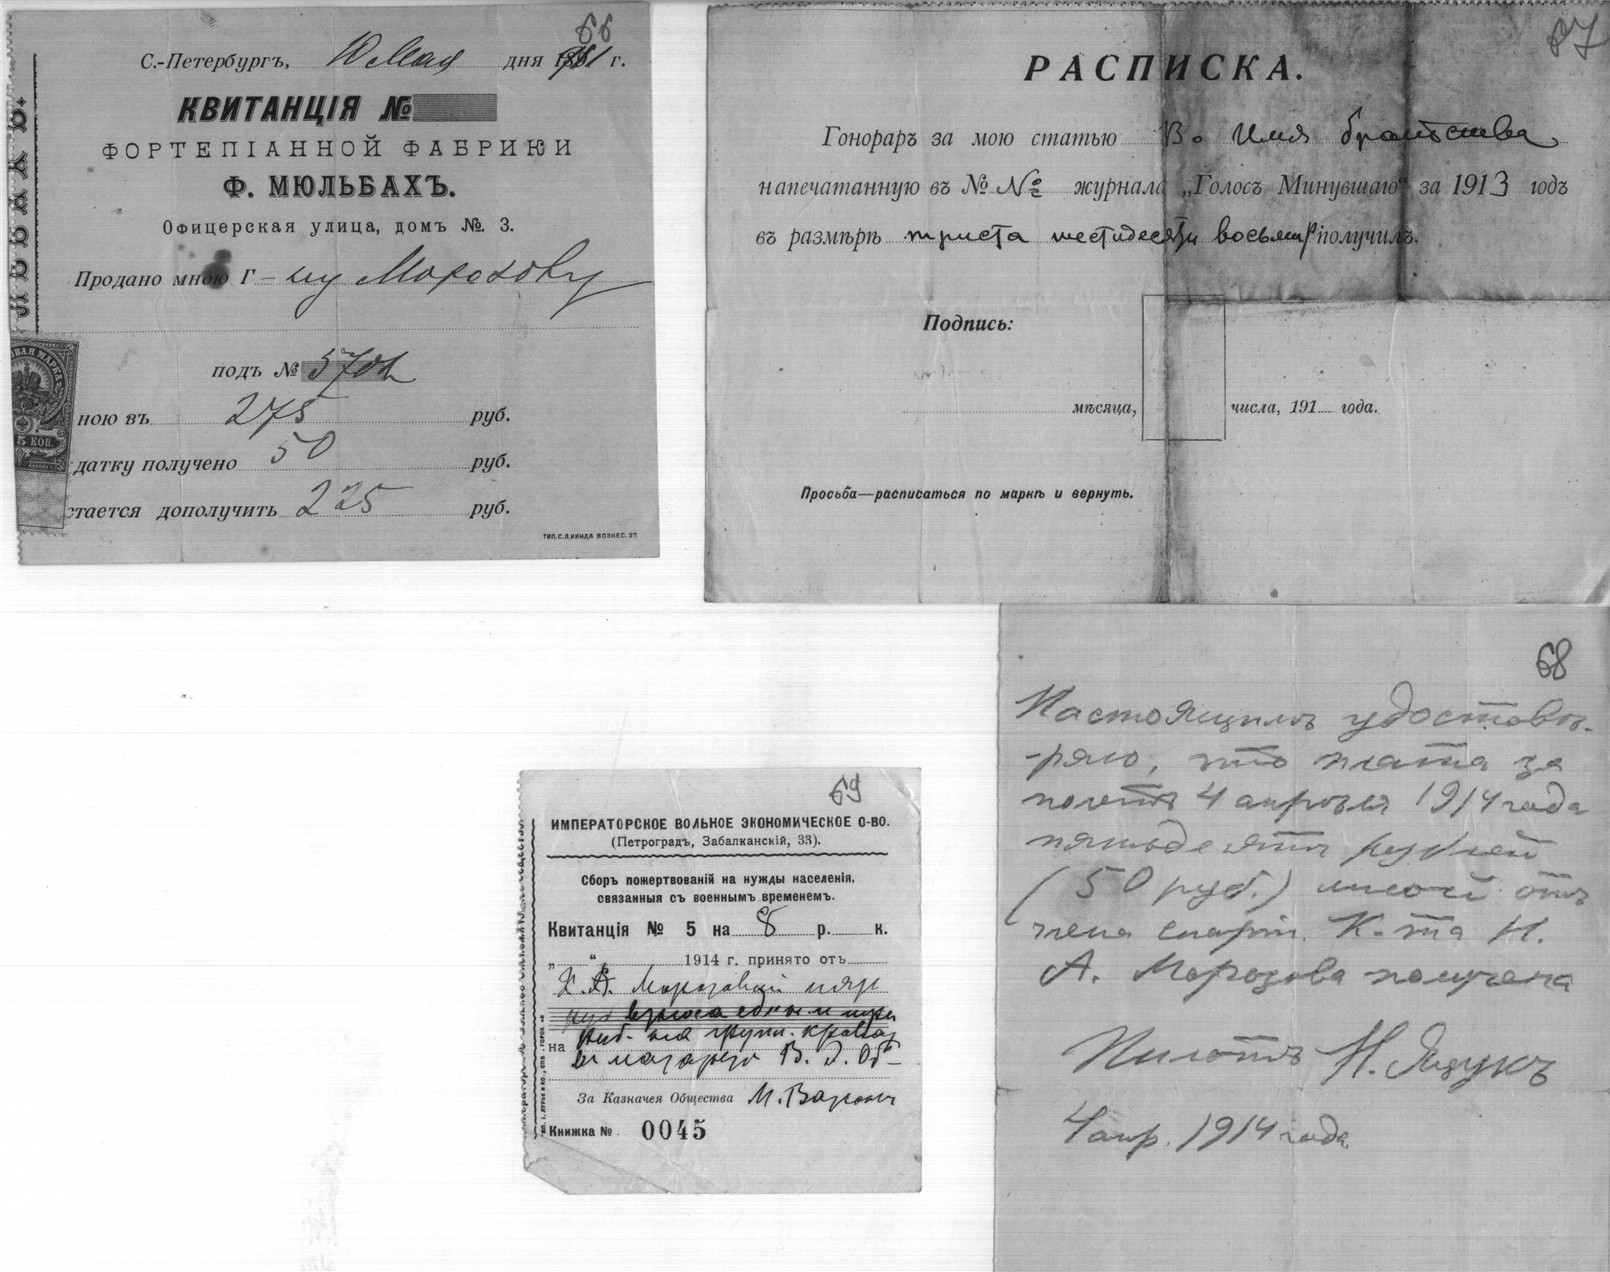 66
С.-Петербургъ, 10 Мая дня 1911 г.
КВИТАНЦІЯ №
ФОРТЕПІАННОЙ ФАБРИКИ
Ф. МЮЛЬБАХЪ.
Офицерская улица, домъ №. 3.
Продано мною Г-ну Морозову
подъ № 5702
ною въ 275 руб.
датку получено 50 руб.
стается дополучить 225 руб.
5 КОП.
ТИП. С.Л. КИНДА ВОЗНЕС. 37
67
РАСПИСКА.
Гонораръ за мою статью Во Имя братства
напечатанную въ № № журнала „Голосъ Минувшаго“ за 1913 годъ
въ размѣрѣ триста шестидесяти восьми р получилъ.
Подпись:
мѣсяца, числа, 191 года.
Просьба—расписаться по маркѣ и вернуть.
68
Настоящимъ удостовѣ-
-ряю, что плата за
полетъ 4 апрѣля 1914 года
пятьдесятъ рублей
(50 руб.) мною отъ
члена спорт. К-та Н.
А. Морозова получена
Пилотъ Н. Яцукъ
4 апр. 1914 года
69
ИМПЕРАТОРСКОЕ ВОЛЬНОЕ ЭКОНОМИЧЕСКОЕ О-ВО.
(Петроградъ, Забалканскій, 33).
Сборъ пожертвованій на нужды населенія,
связанныя съ военнымъ временемъ.
Квитанція № 5 на 8 р. к.
„ “ 1914 г. принято отъ
Н. А. Морозовой
взноса
на
въ лазаретъ В. Э. Об-
За Казначея Общества
Книжка № 0045